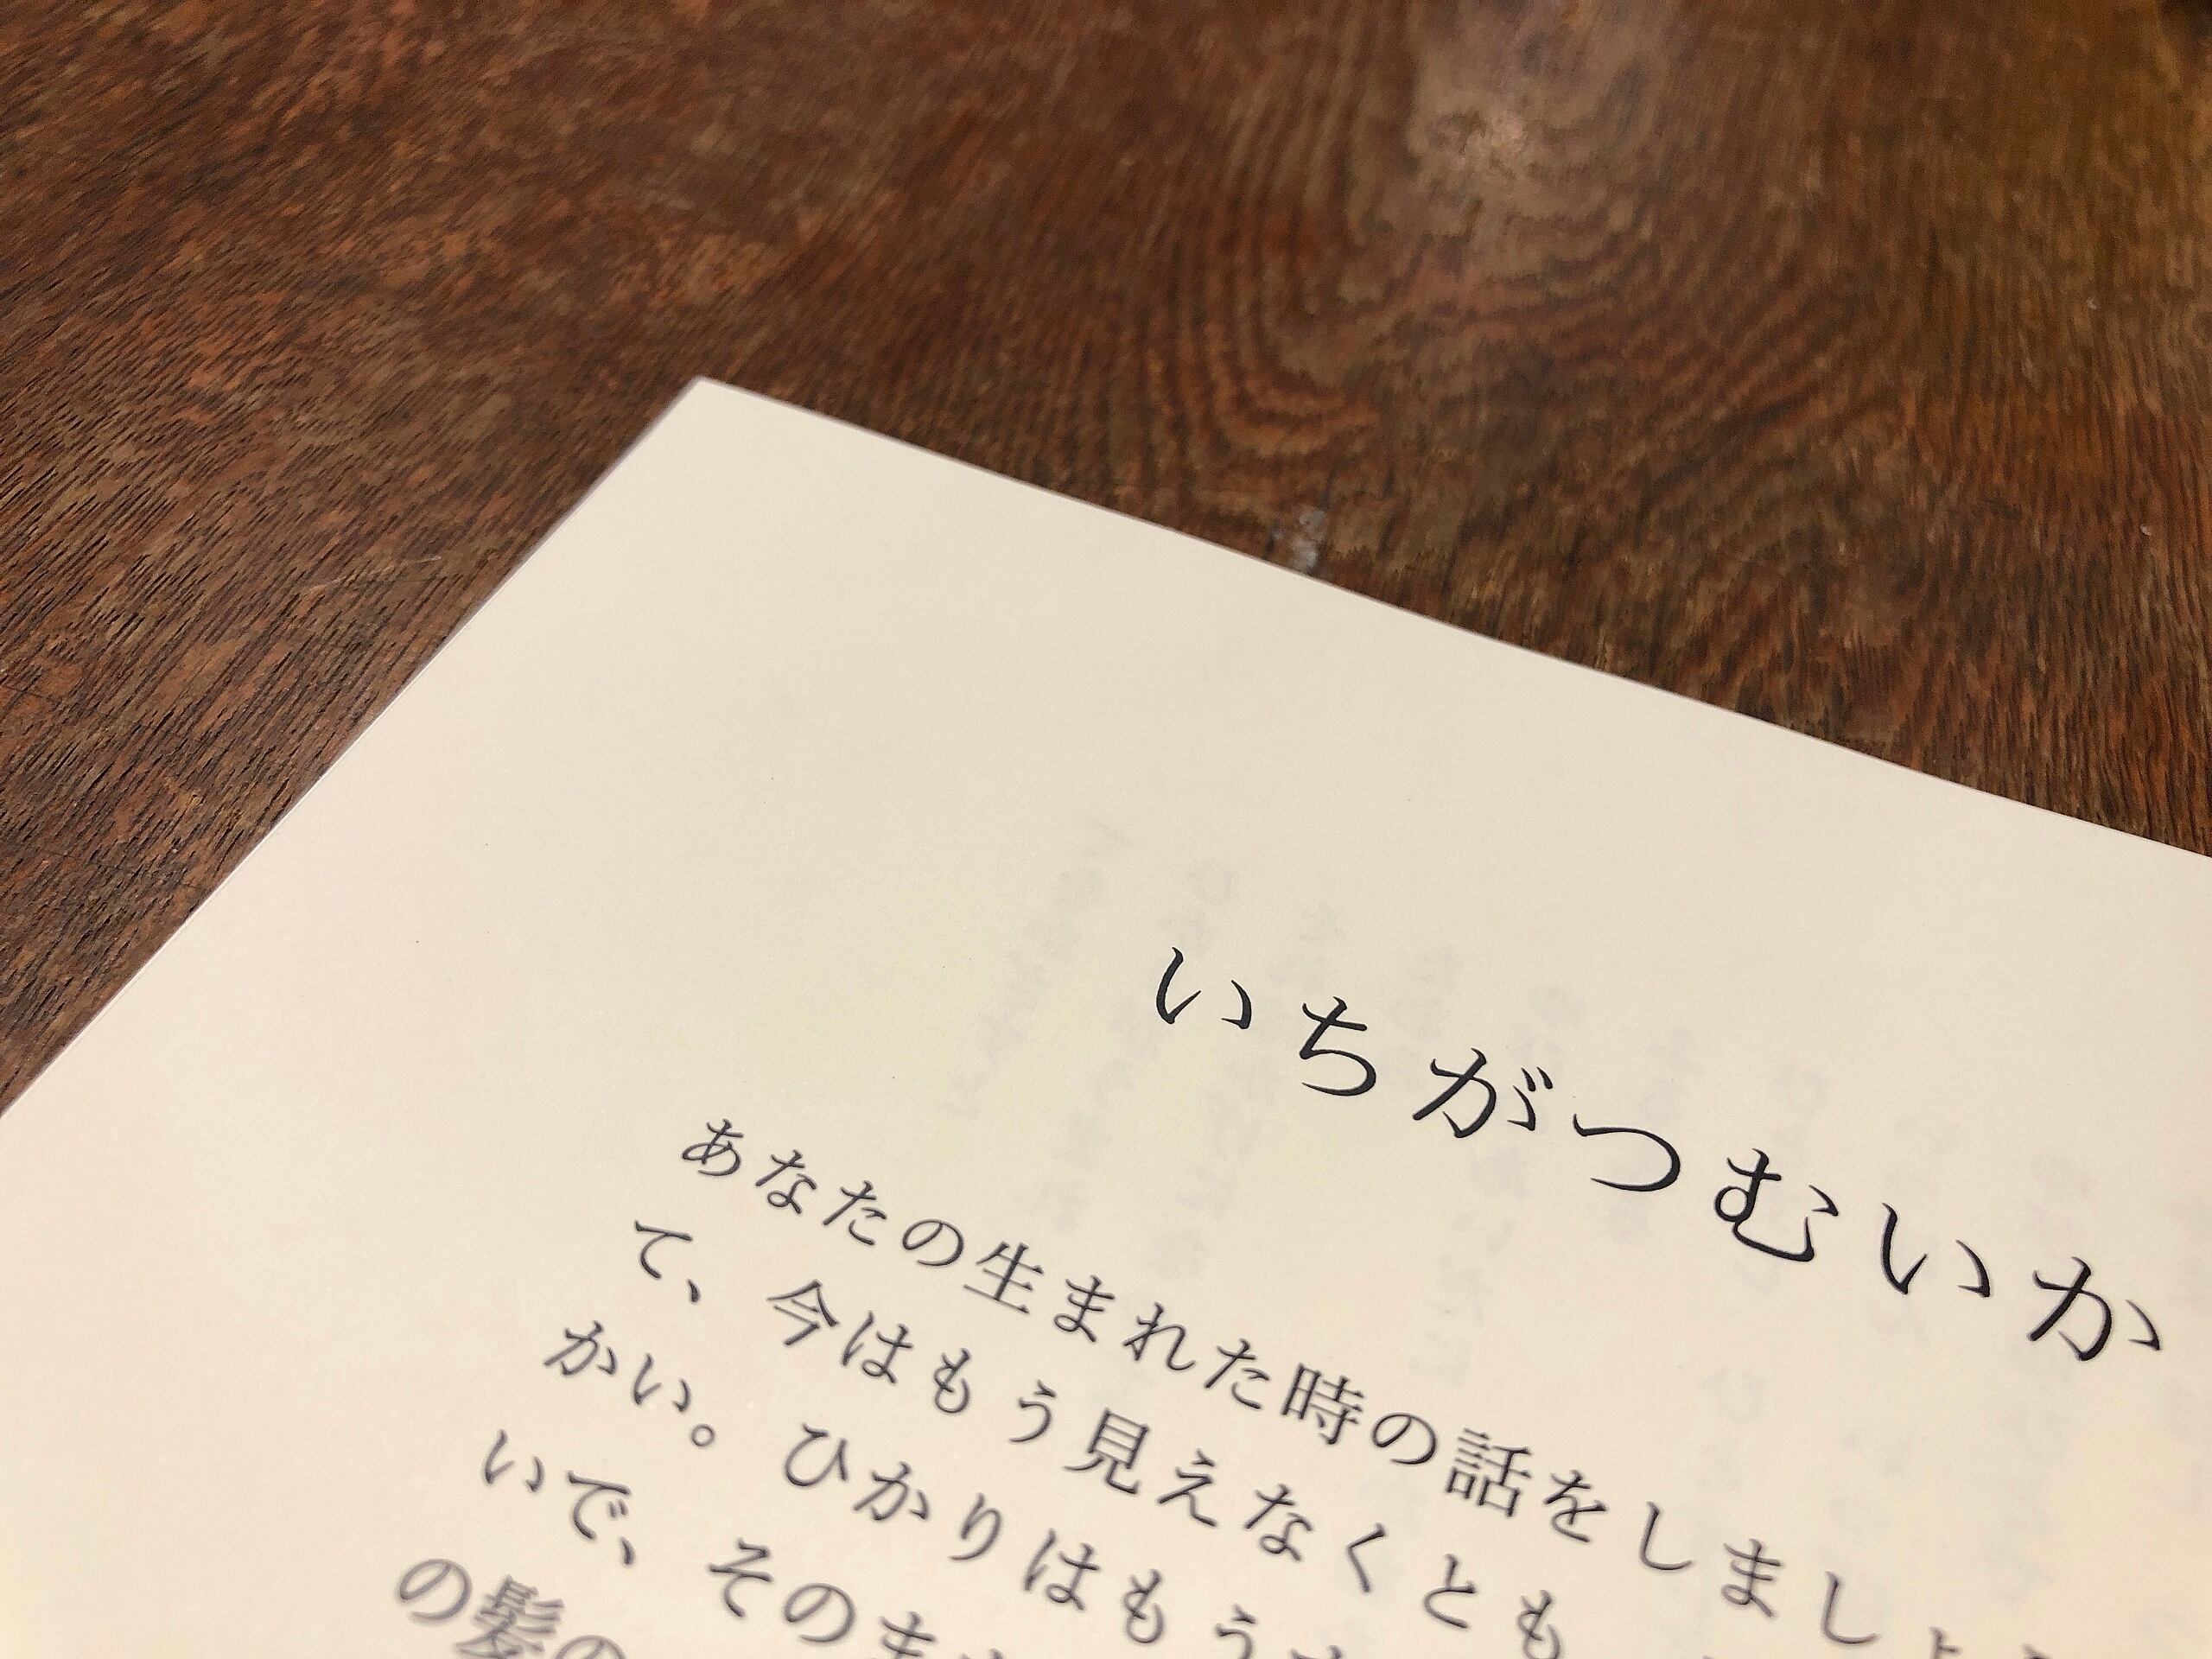 いちがつむいか
あなたの生まれた時の話をしましょ
て、今はもう見えなくとも
かい。ひかりはもう
いで、そのま
の髪の